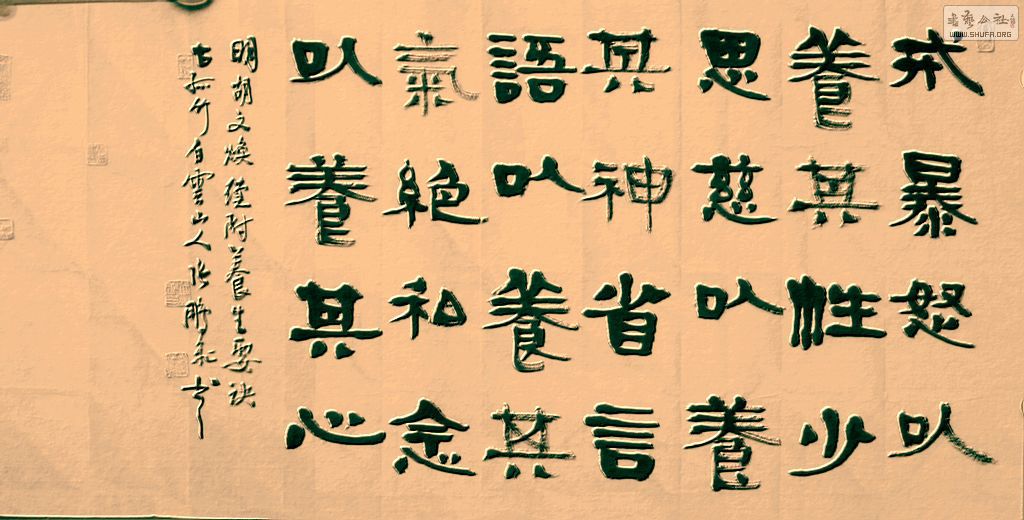 戒暴怒以
養其性少
思慈以養
其神省言
語以養其
氣絕私念
以養其心
明胡文煥經附養生要訣
古孤竹白雲山人張鵬書
書藝公社
WWW.SHUFA.ORG